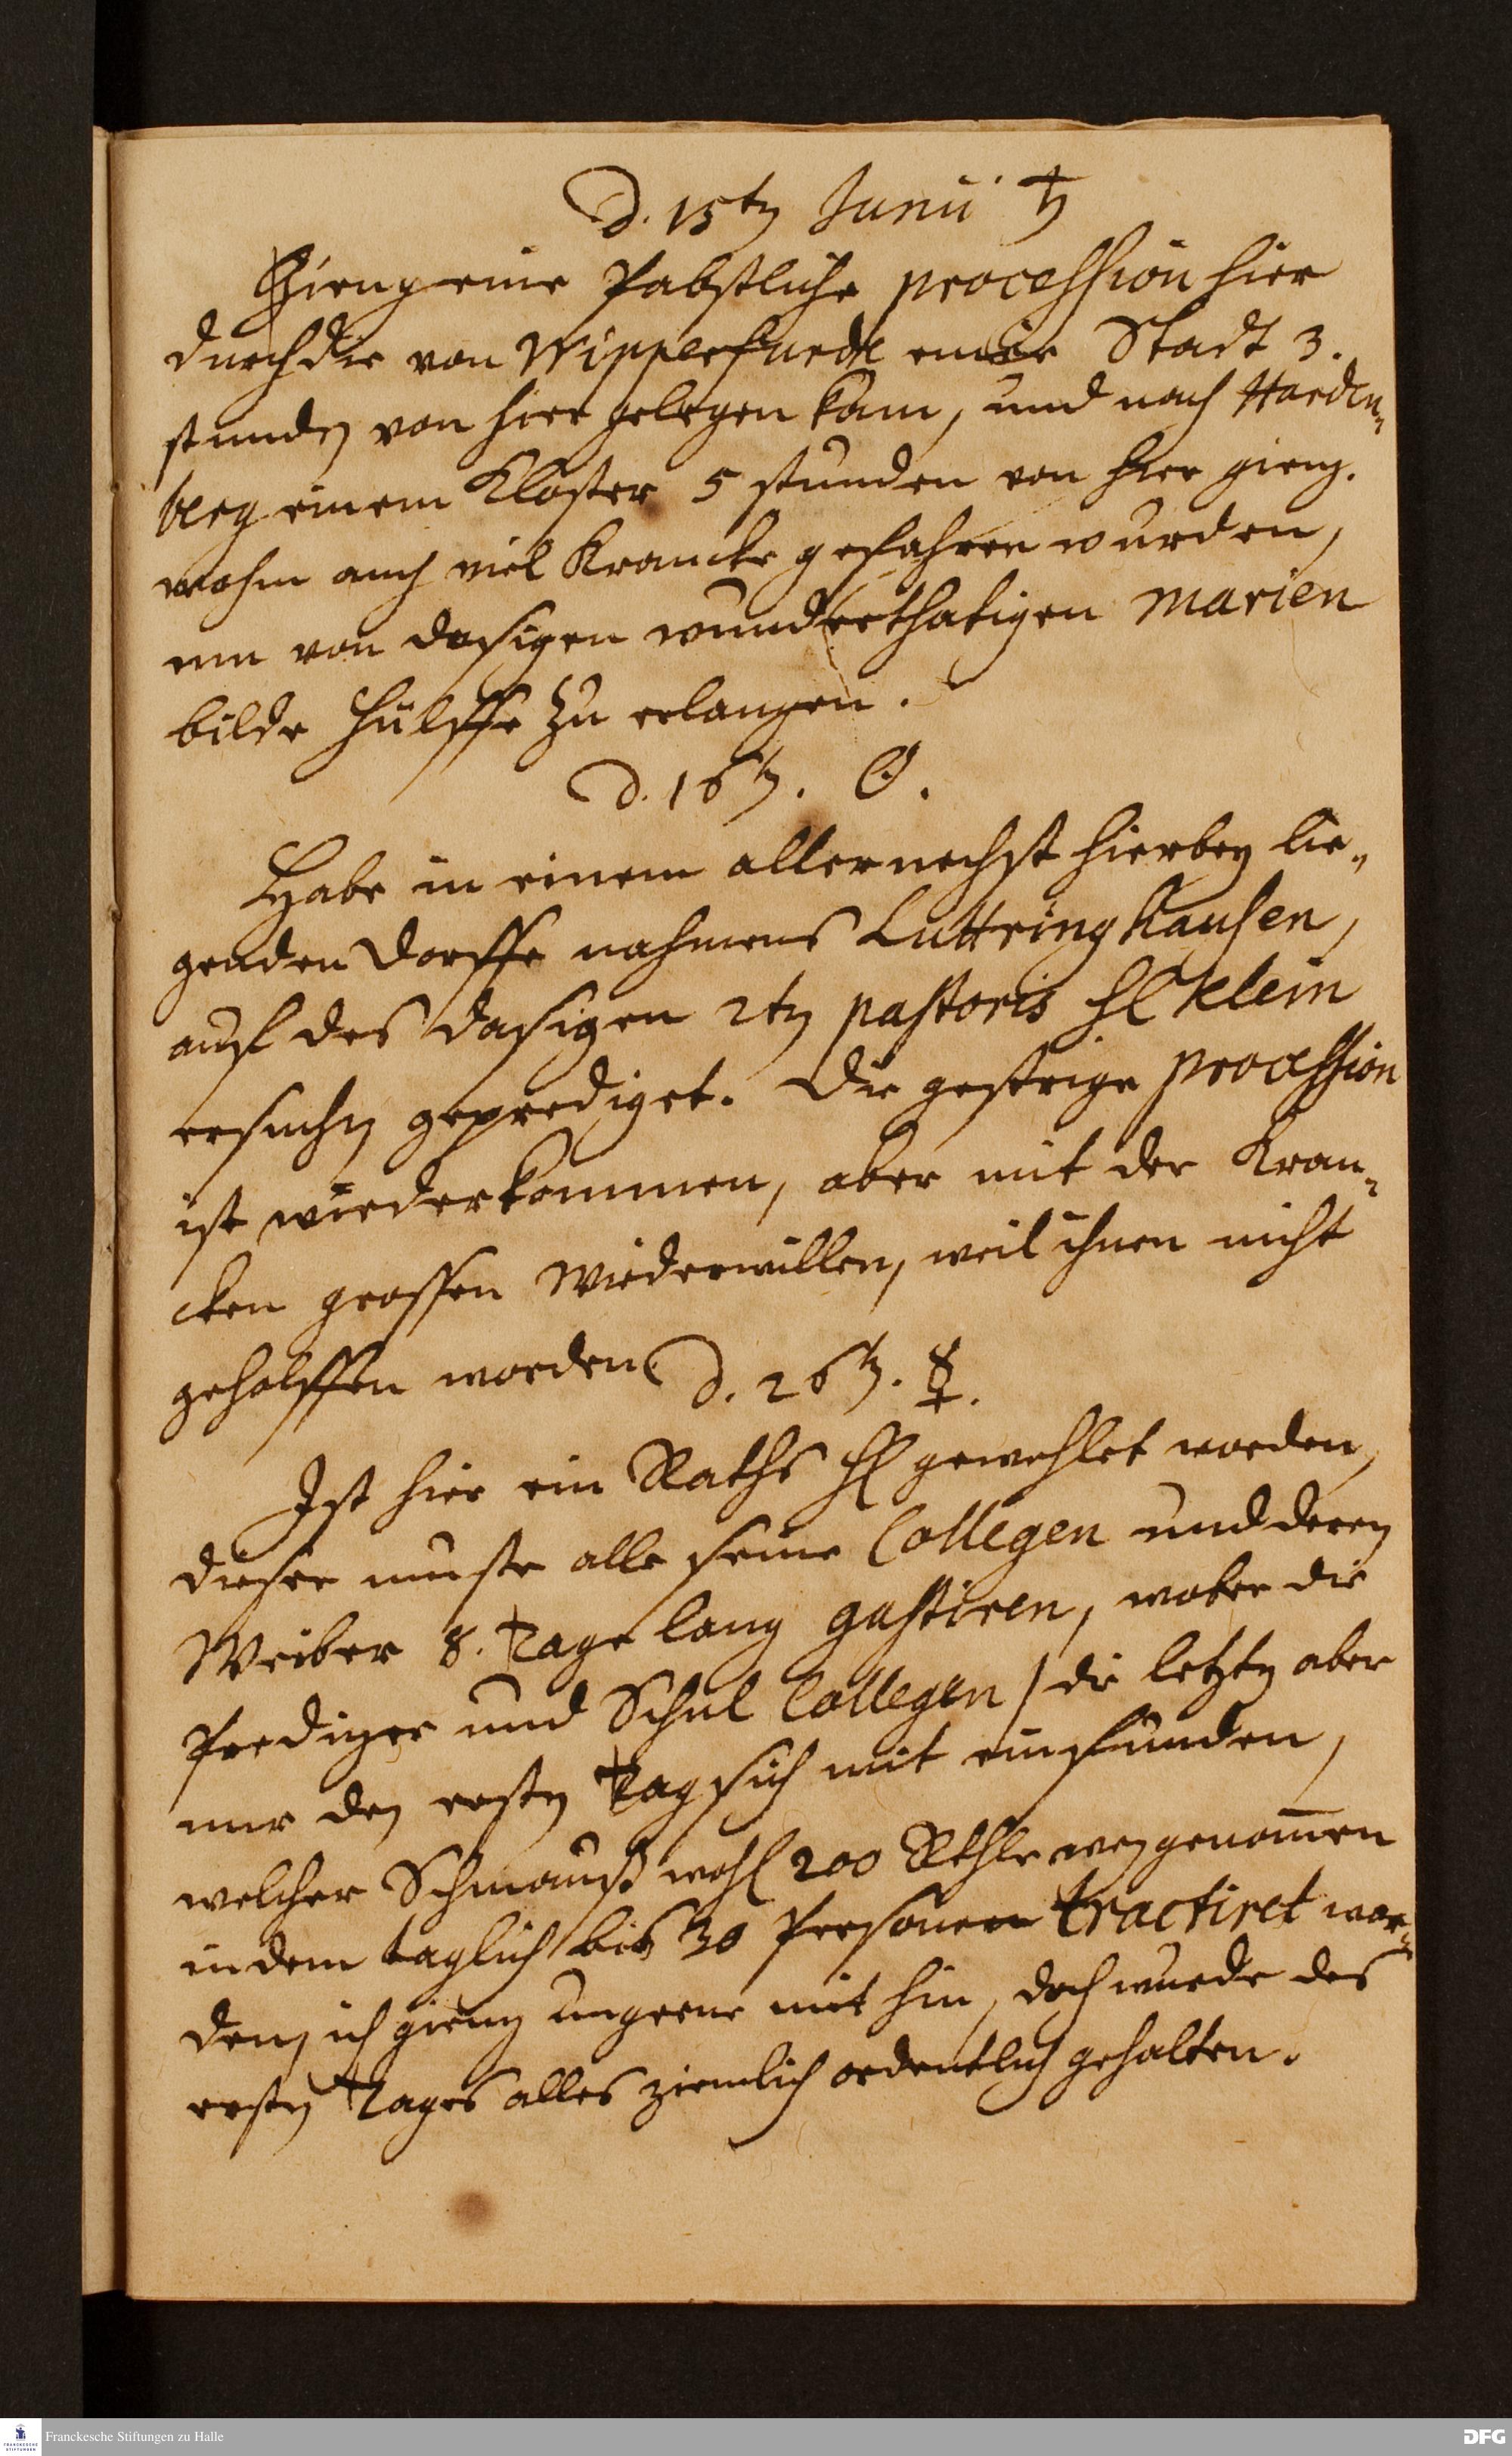 d. 15tn Junii ♄
Gieng eine Pabstliche procession hier
durch die von Wipperfurth einer Stadt 3.
stunden von hier gelegen kam, und nach Harden„
berg einem Kloster 5 stunden von hier gieng.
wohin auch viel Krancke gefahren wurden,
um von dasigen wunderthatigen Marien
bilde Hülffe zu erlangen.
d. 16tn. ☉.
Habe in einem allernechst hierbey lie„
genden Dorffe nahmens Luttringhausen,
auf des dasigen 2tn pastoris H. Klein
ersuchen geprediget. Die gestrige procession
ist wiederkommen, aber mit der Kran„
cken grossen Wiederwillen, weil ihnen nicht
geholffen worden
d. 26tn. ☿.
Ist hier ein Raths H. gewehlet worden,
dieser muste alle seine Collegen und deren
Weiber 8. Tage lang gastiren, wobey die
Prediger und Schul Collegen / die letzten aber
nur den ersten Tag sich mit einfunden,
welcher Schmauß wohl 200 Rthlr weggenom̅en
indem taglich bis 30 Personen tractiret wor„
den, ich gieng ungerne mit hin, doch wurde des
ersten Tages alles ziemlich ordentlich gehalten.
Franckesche Stiftungen zu Halle
DFG